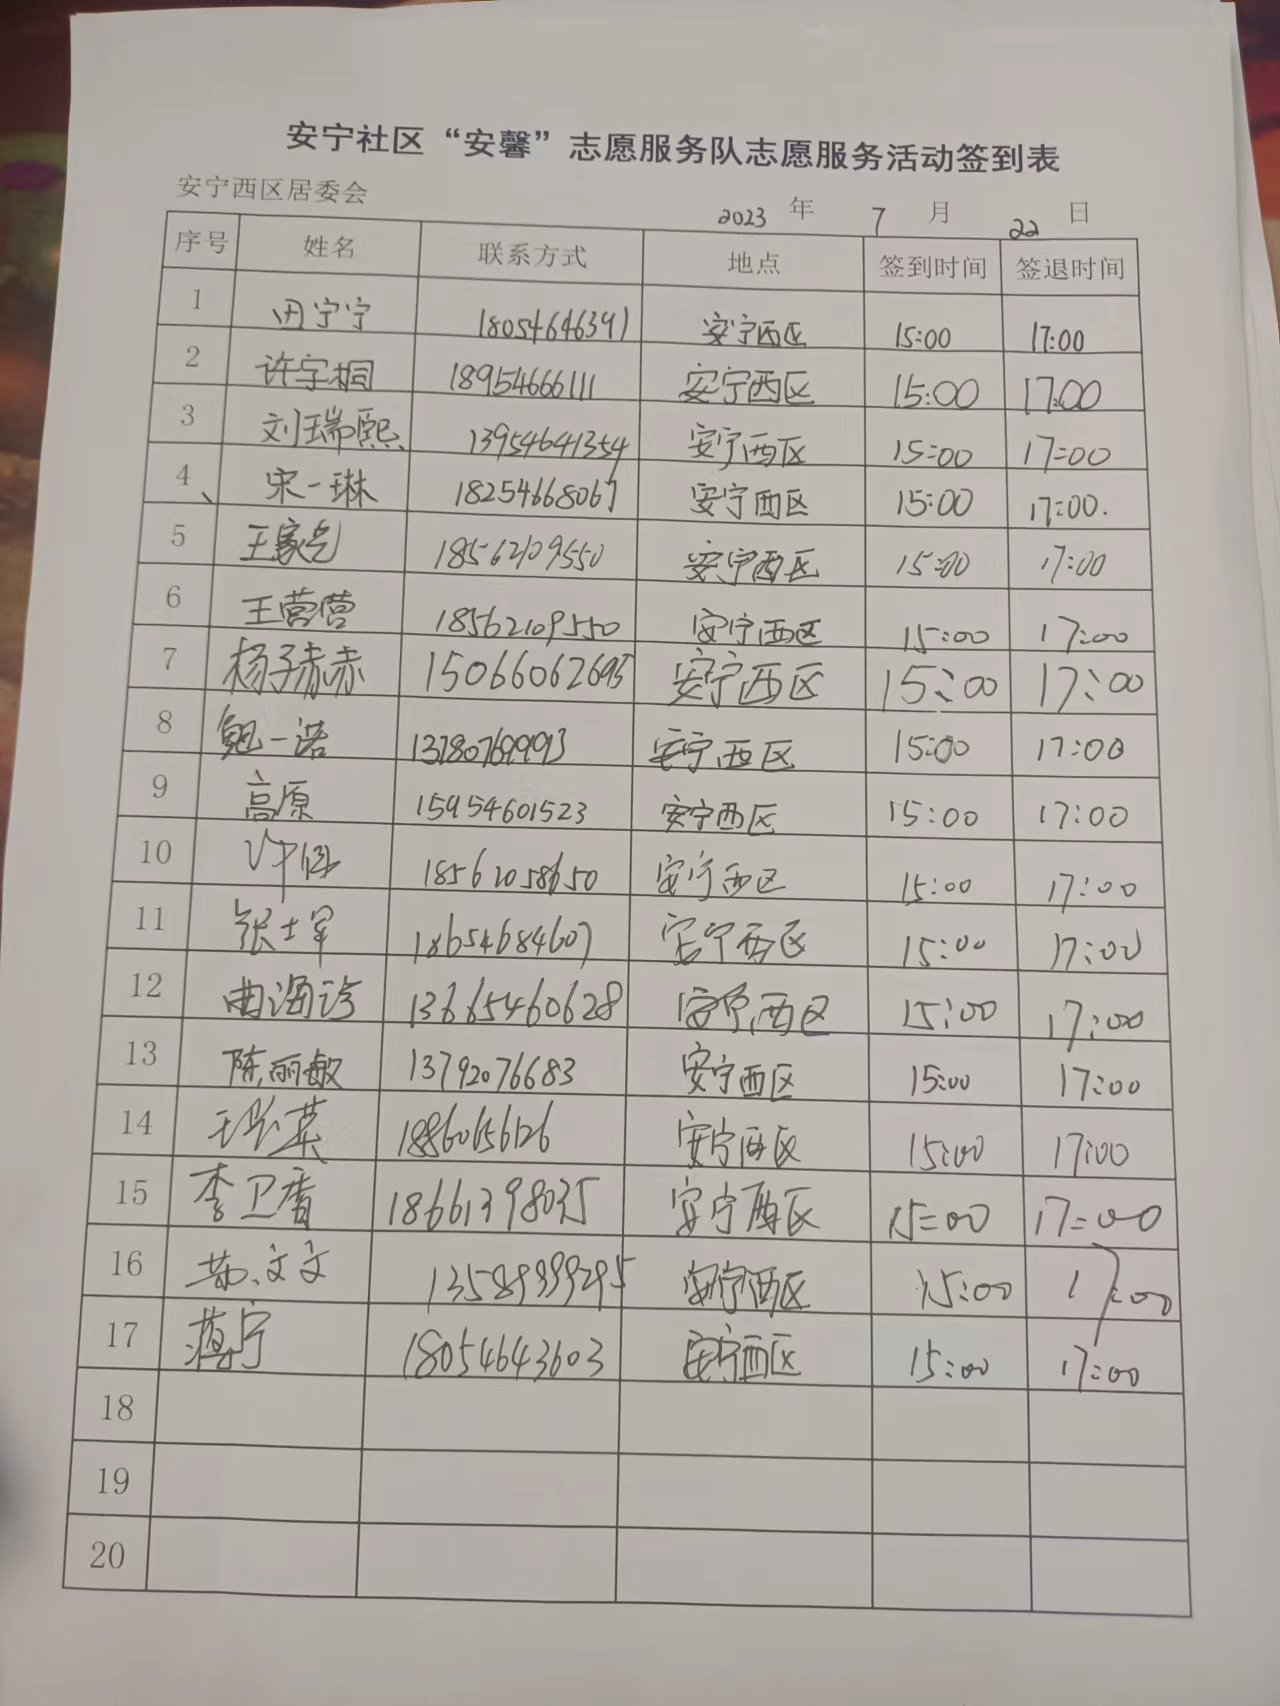 安宁社区“安馨”志愿服务队志愿服务活动签到表
安宁西区居委会 2023 年 7 月 22 日
序号 姓名 联系方式 地点 签到时间 签退时间
1 田宁宁 18054646391 安宁西区 15:00 17:00
2 许宇桐 18954666111 安宁西区 15:00 17:00
3 刘瑞熙 13954641354 安宁西区 15:00 17:00
4 宋一琳 18254668067 安宁西区 15:00 17:00.
5 王家 18562109550 安宁西区 15:00 17:00
6 王营营 18562109550 安宁西区 15:00 17:00
7 杨子赫 15066062695 安宁西区 15:00 17:00
8 鲍一诺 13780769993 安宁西区 15:00 17:00
9 高原 15954601523 安宁西区 15:00 17:00
10 18562058650 安宁西区 15:00 17:00
11 张士军 18654684607 安宁西区 15:00 17:00
12 曲海 13665460628 安宁西区 15:00 17:00
13 陈丽敏 13792076683 安宁西区 15:00 17:00
14 安宁西区 15:00 17:00
15 李卫香 18661398035 安宁西区 15:00 17:00
16 文文 13589999295 安宁西区 15:00 17:00
17 蒋宁 18054643603 安宁西区 15:00 17:00
18
19
20